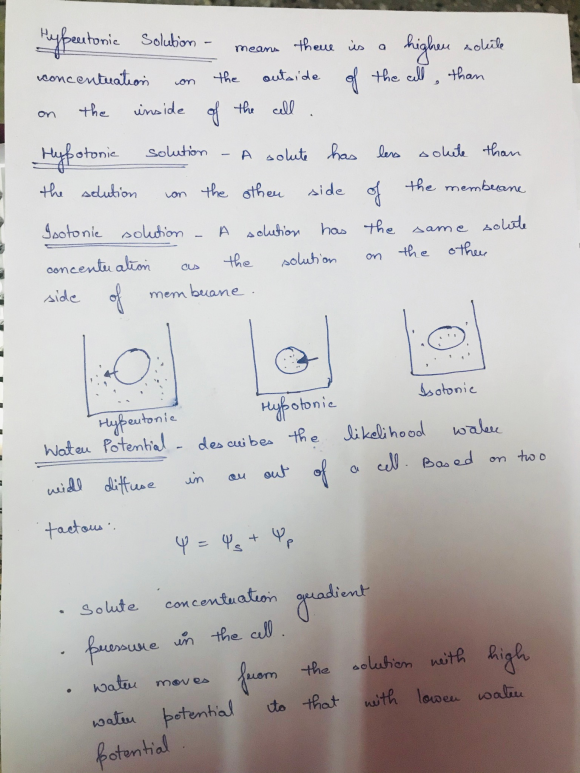 Hypertonic Solution - means there is a higher solute
concentration on the outside of the cell, than
on the inside of the cell.
Hypotonic Solution - A solute has less solute than
the solution on the other side of the membrane
Isotonic solution - A solution has the same solute
concentration as the solution on the other
side of membrane.
Hypertonic
Hypotonic
Isotonic
Water Potential - describes the likelihood water
will diffuse in or out of a cell. Based on two
factors:.
Ψ = Ψs + Ψp
• Solute concentration gradient
• pressure in the cell.
• water moves from the solution with high
water potential to that with lower water
potential.